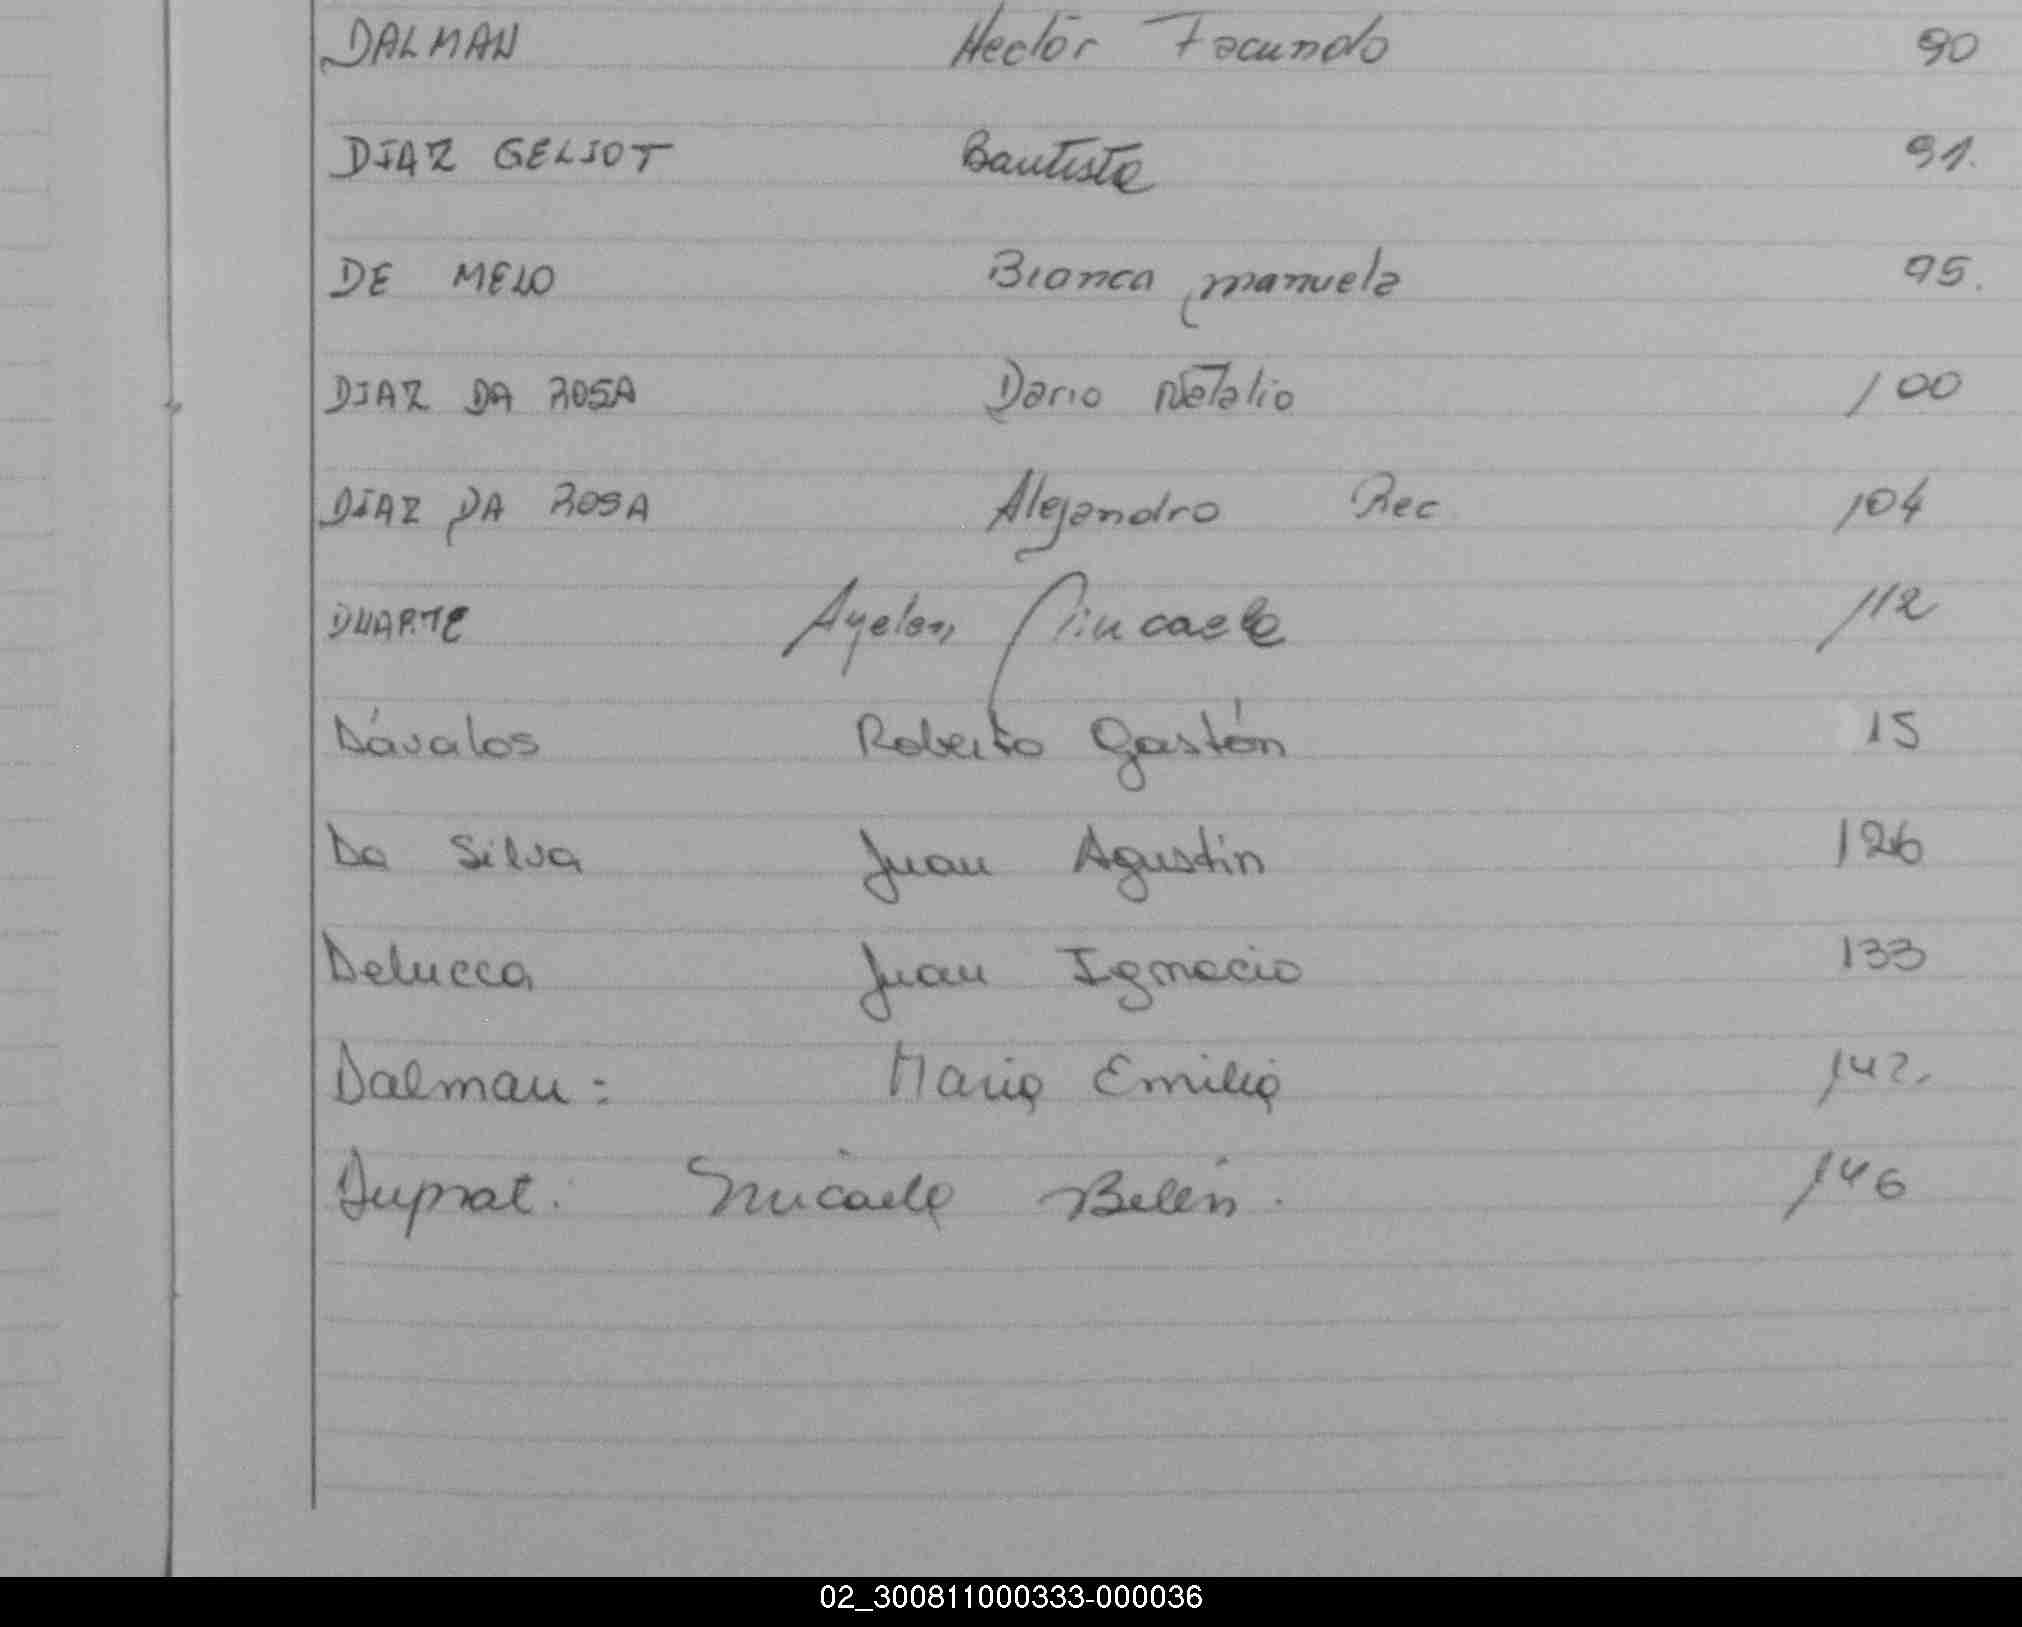 DALMAN Hector Facundo 90
DIAZ GELIOT Bautista 91.
DE MELO Bianca manuela 95.
DIAZ DA ROSA Dario Natalio 100
DIAZ DA ROSA Alejandro Rec 104
DUARTE Ayelen Micaela 112
Dávalos Roberto Gastón 15
Da Silva Juan Agustin 126
Delucca Juan Ignacio 133
Dalmau: Maria Emilia 142.
Duprat. Micaela Belén. 146
02_300811000333-000036